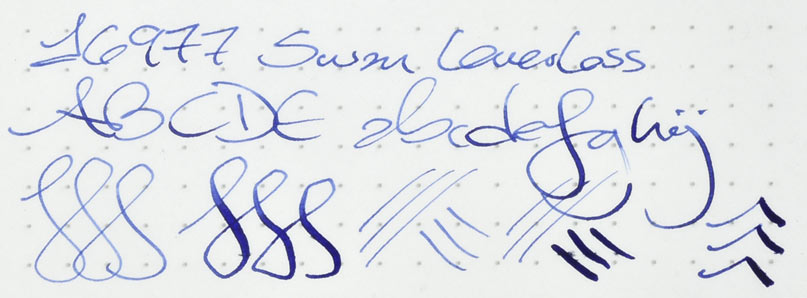 16977 Swan Leverless
ABCDE abcdefghij